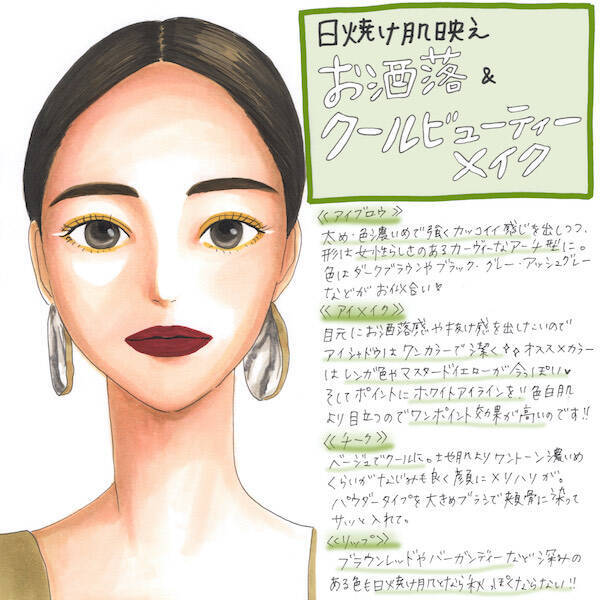 日焼け肌映え
お洒落 &
クールビューティー
メイク
《アイブロウ》
太め・色濃いめで強くカッコイイ感じを出しつつ、
形は女性らしさのあるカーヴィーなアーチ型に。
色はダークブラウンやブラック、グレー・アッシュグレー
などがお似合い♡
《アイメイク》
目元にお洒落感や抜け感を出したいので
アイシャドウはワンカラーで潔く☆☆オススメカラー
はレンガ色やマスタードイエローが今っぽい♥
そしてポイントにホワイトアイラインを!! 色白肌
より目立つのでワンポイント効果が高いのです!!
《チーク》
ベージュでクールに。土や肌よりワントーン濃いめ
くらいがなじみも良く顔にメリハリが。
パウダータイプを大きめブラシで頬骨に添って
サッと入れて。
《リップ》
ブラウンレッドやバーガンディーなど深みの
ある色も日焼け肌となら秋っぽくならない!!